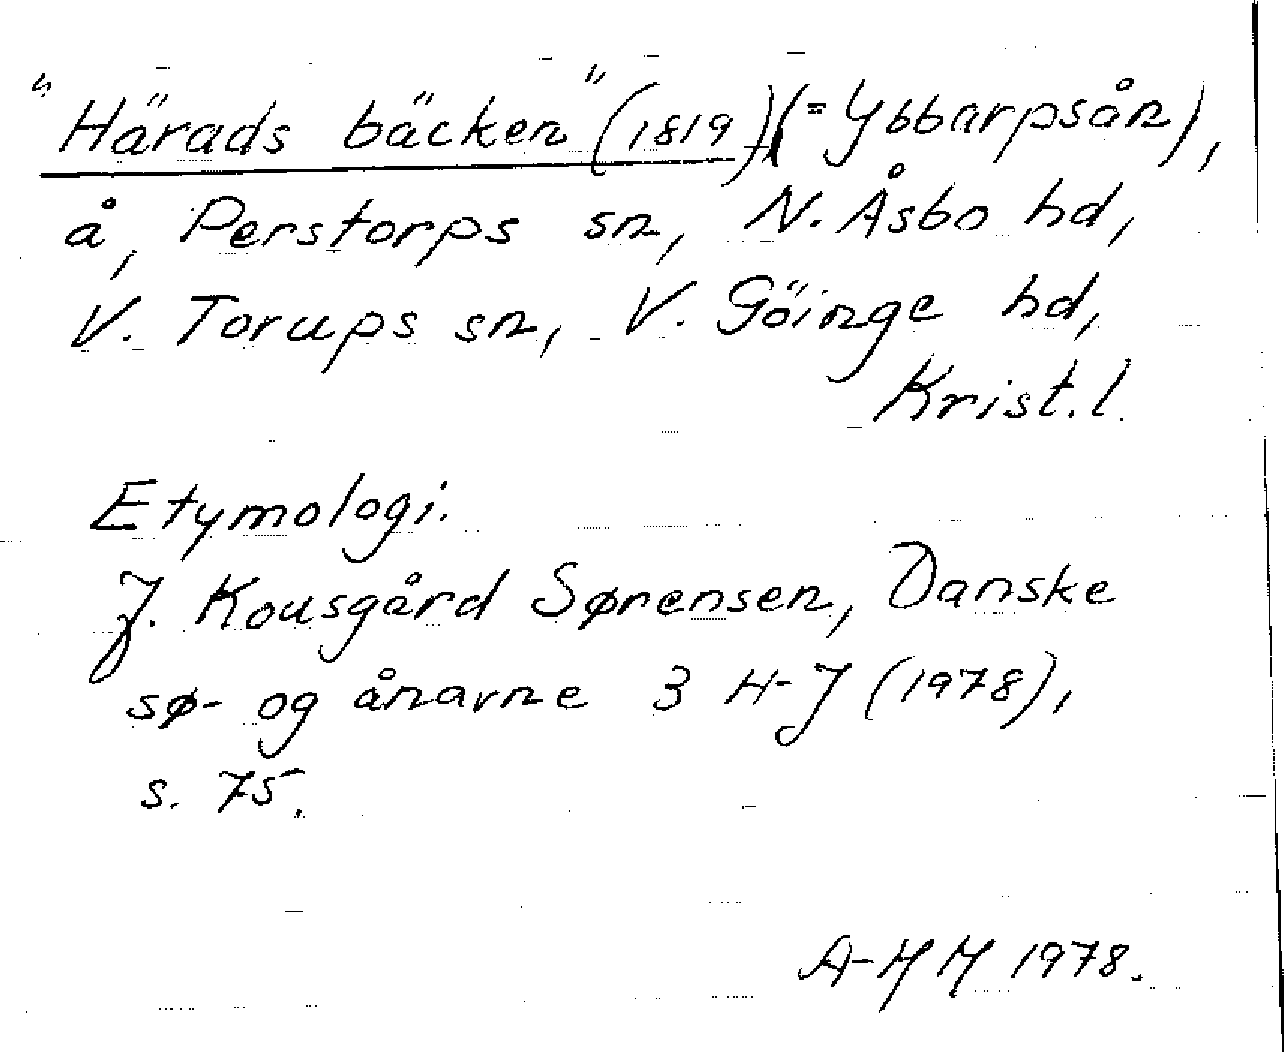 "Härads bäcken" (1819) (= Ybbarpsån),
å, Perstorps sn, N. Åsbo hd,
V. Torups sn, V. Göinge hd,
Krist. l.
Etymologi.
J. Kousgård Sørensen, Danske
sø- og ånavne 3 H-J (1978),
s. 75.
A-HH 1978.